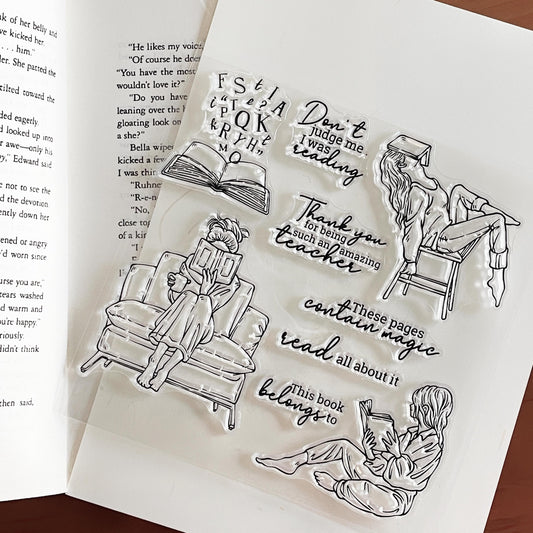 k of her belly and
ve kicked her
. . . him."
ler. She patted the
tilted toward the
ded eagerly.
d looked up into
r awe—only his
," Edward said
e not to see the
d the devotion
ently down her
ened or angry
'd worn since
urse you are,"
tears washed
d warm and
ou're happy."
riously.
didn't think
then said,
"He likes my voice
"Of course he doe
"You have the most
wouldn't love it?"
"Do you have
leaning over the b
gloating look on
a she?"
Bella wiped
kicked a few
I was thin
"Ruhne
"R-e-n
"No,
close toge
of a kin
"I
F S t I
i a T e ? A
P Q K
k R y H "
M O
Don't
judge me,
I was
reading
Thank you
for being
such an amazing
teacher
These pages
contain magic
read all about it
This book
belongs to